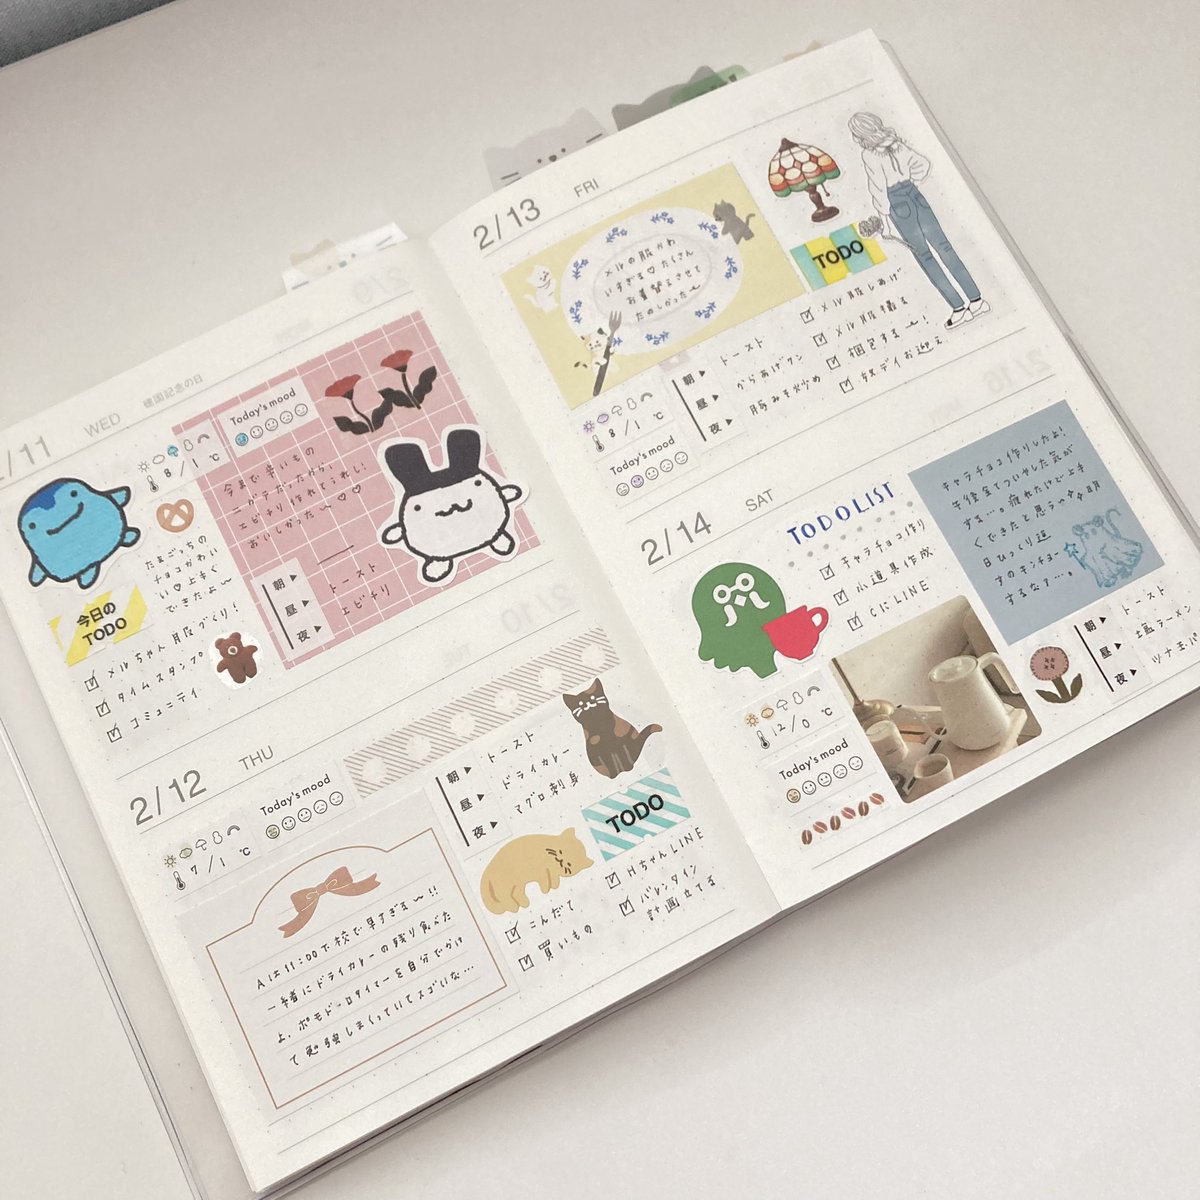 2/11 WED 建国記念の日
8/1 ℃
Today's mood
今まで辛いもの
ニガテだったから、
エビチリ作れてうれし!
おいしかった〜♡♡
たまごっちの
チョコがかわい
い♡上手く
できたよ〜
今日の
TODO
メルちゃん 月服づくり!
タイムスタンプ
コミュニティ
朝▶
昼▶ トースト
夜▶ エビチリ
2/12 THU
7/1 ℃
Today's mood
朝▶ トースト
昼▶ ドライカレー
夜▶ マグロ刺身
TODO
HちゃんLINE
バレンタイン
計画立てる
こんだて
買いもの
Aは11:00下校で早すぎる〜!!
一緒にドライカレーの残り食べた
よ。ポモドーロタイマーを自分でかけ
て勉強しまくっていてスゴいな…
2/13 FRI
メルの服かわ
いすぎる♡たくさん
お着替えさせて
たのしかった〜
TODO
メル服しあげ
メル服撮る
梱包する〜!
デイお迎え
8/1 ℃
Today's mood
朝▶ トースト
昼▶ からあげクン
夜▶ 豚みそ炒め
2/14 SAT
TODOLIST
キャラチョコ作り
小道具作成
CにLINE
キャラチョコ作りしたよ!
午後全てついやした気が
する…。疲れたけど上手
くできたと思うゃ
12/0 ℃
Today's mood
朝▶ トースト
昼▶ 塩ラーメン
夜▶